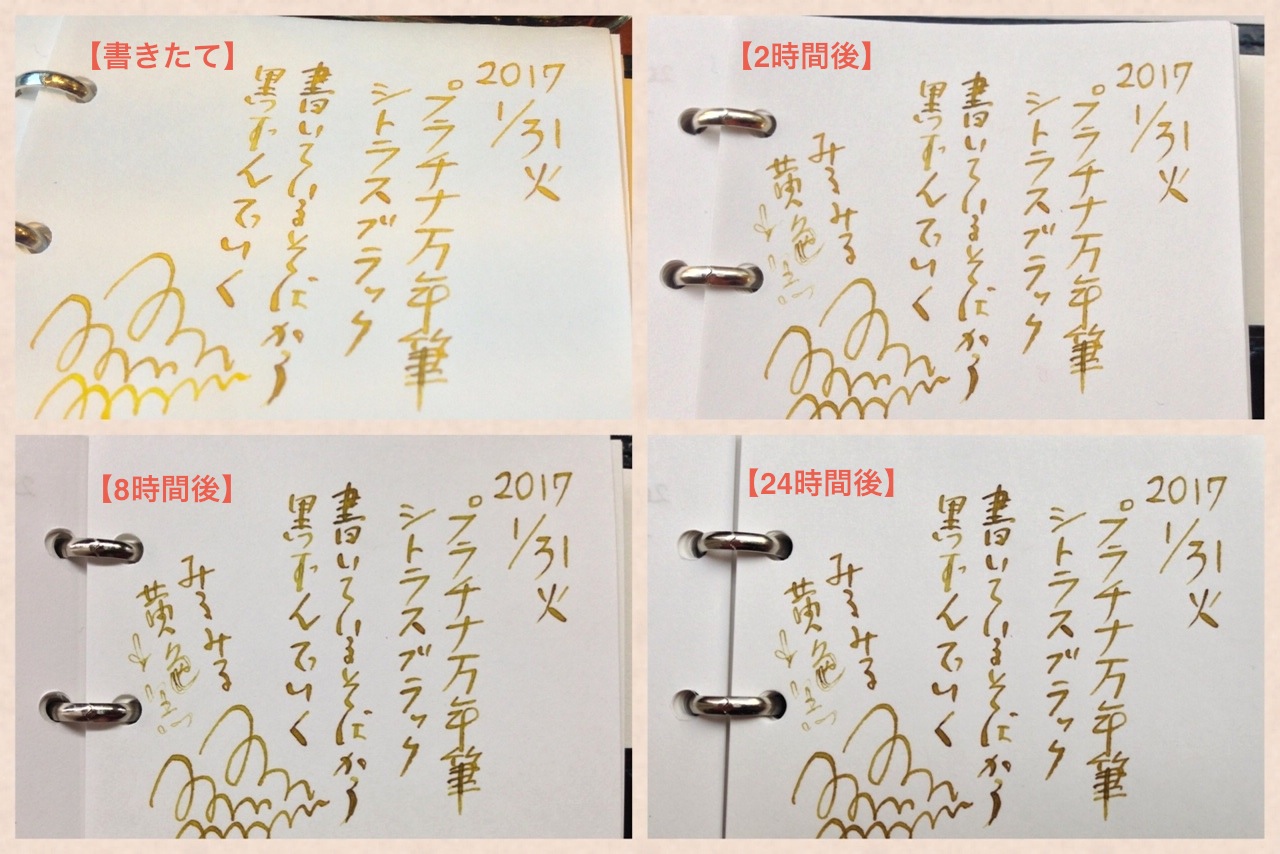 【書きたて】
2017
1/31
火
プラチナ万年筆
シトラスブラック
書いているそばから
黒ずんでいく
【2時間後】
2017
1/31
火
プラチナ万年筆
シトラスブラック
書いているそばから
黒ずんでいく
みるみる
黄色
↓
黒
【8時間後】
2017
1/31
火
プラチナ万年筆
シトラスブラック
書いているそばから
黒ずんでいく
みるみる
黄色
↓
黒
【24時間後】
2017
1/31
火
プラチナ万年筆
シトラスブラック
書いているそばから
黒ずんでいく
みるみる
黄色
↓
黒